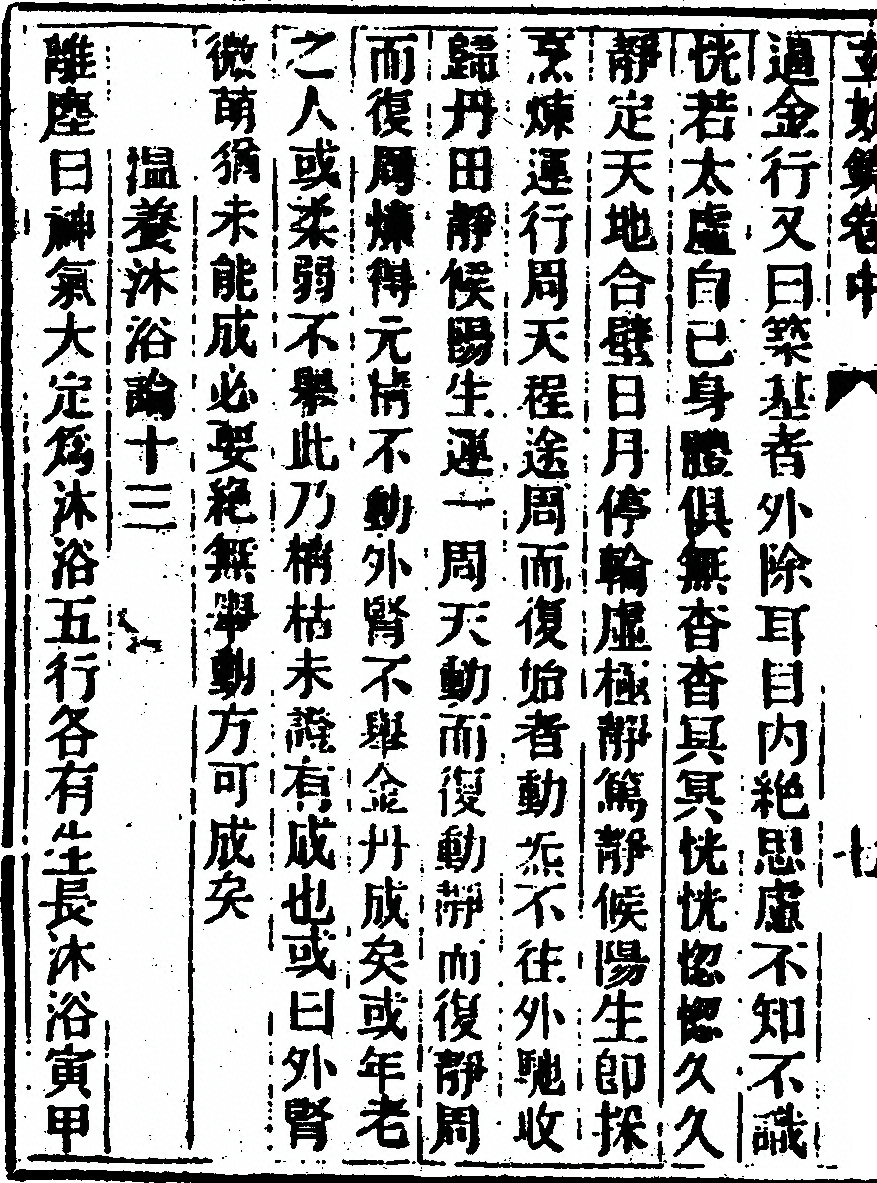 玄妙鏡卷中
過金行又曰築基者外除耳目內絕思慮不知不識
恍若太虛自己身體俱無杳杳冥冥恍恍惚惚久久
靜定天地合璧日月停輪虛極靜篤靜候陽生即採
烹煉運行周天程途周而復始者動炁不往外馳收
歸丹田靜候陽生運一周天動而復動靜而復靜周
而復周煉得元情不動外腎不舉金丹成矣或年老
之人或柔弱不舉此乃槁枯未證有成也或曰外腎
微萌猶未能成必要絕無舉動方可成矣
溫養沐浴論十三
離塵曰神氣大定為沐浴五行各有生長沐浴寅甲